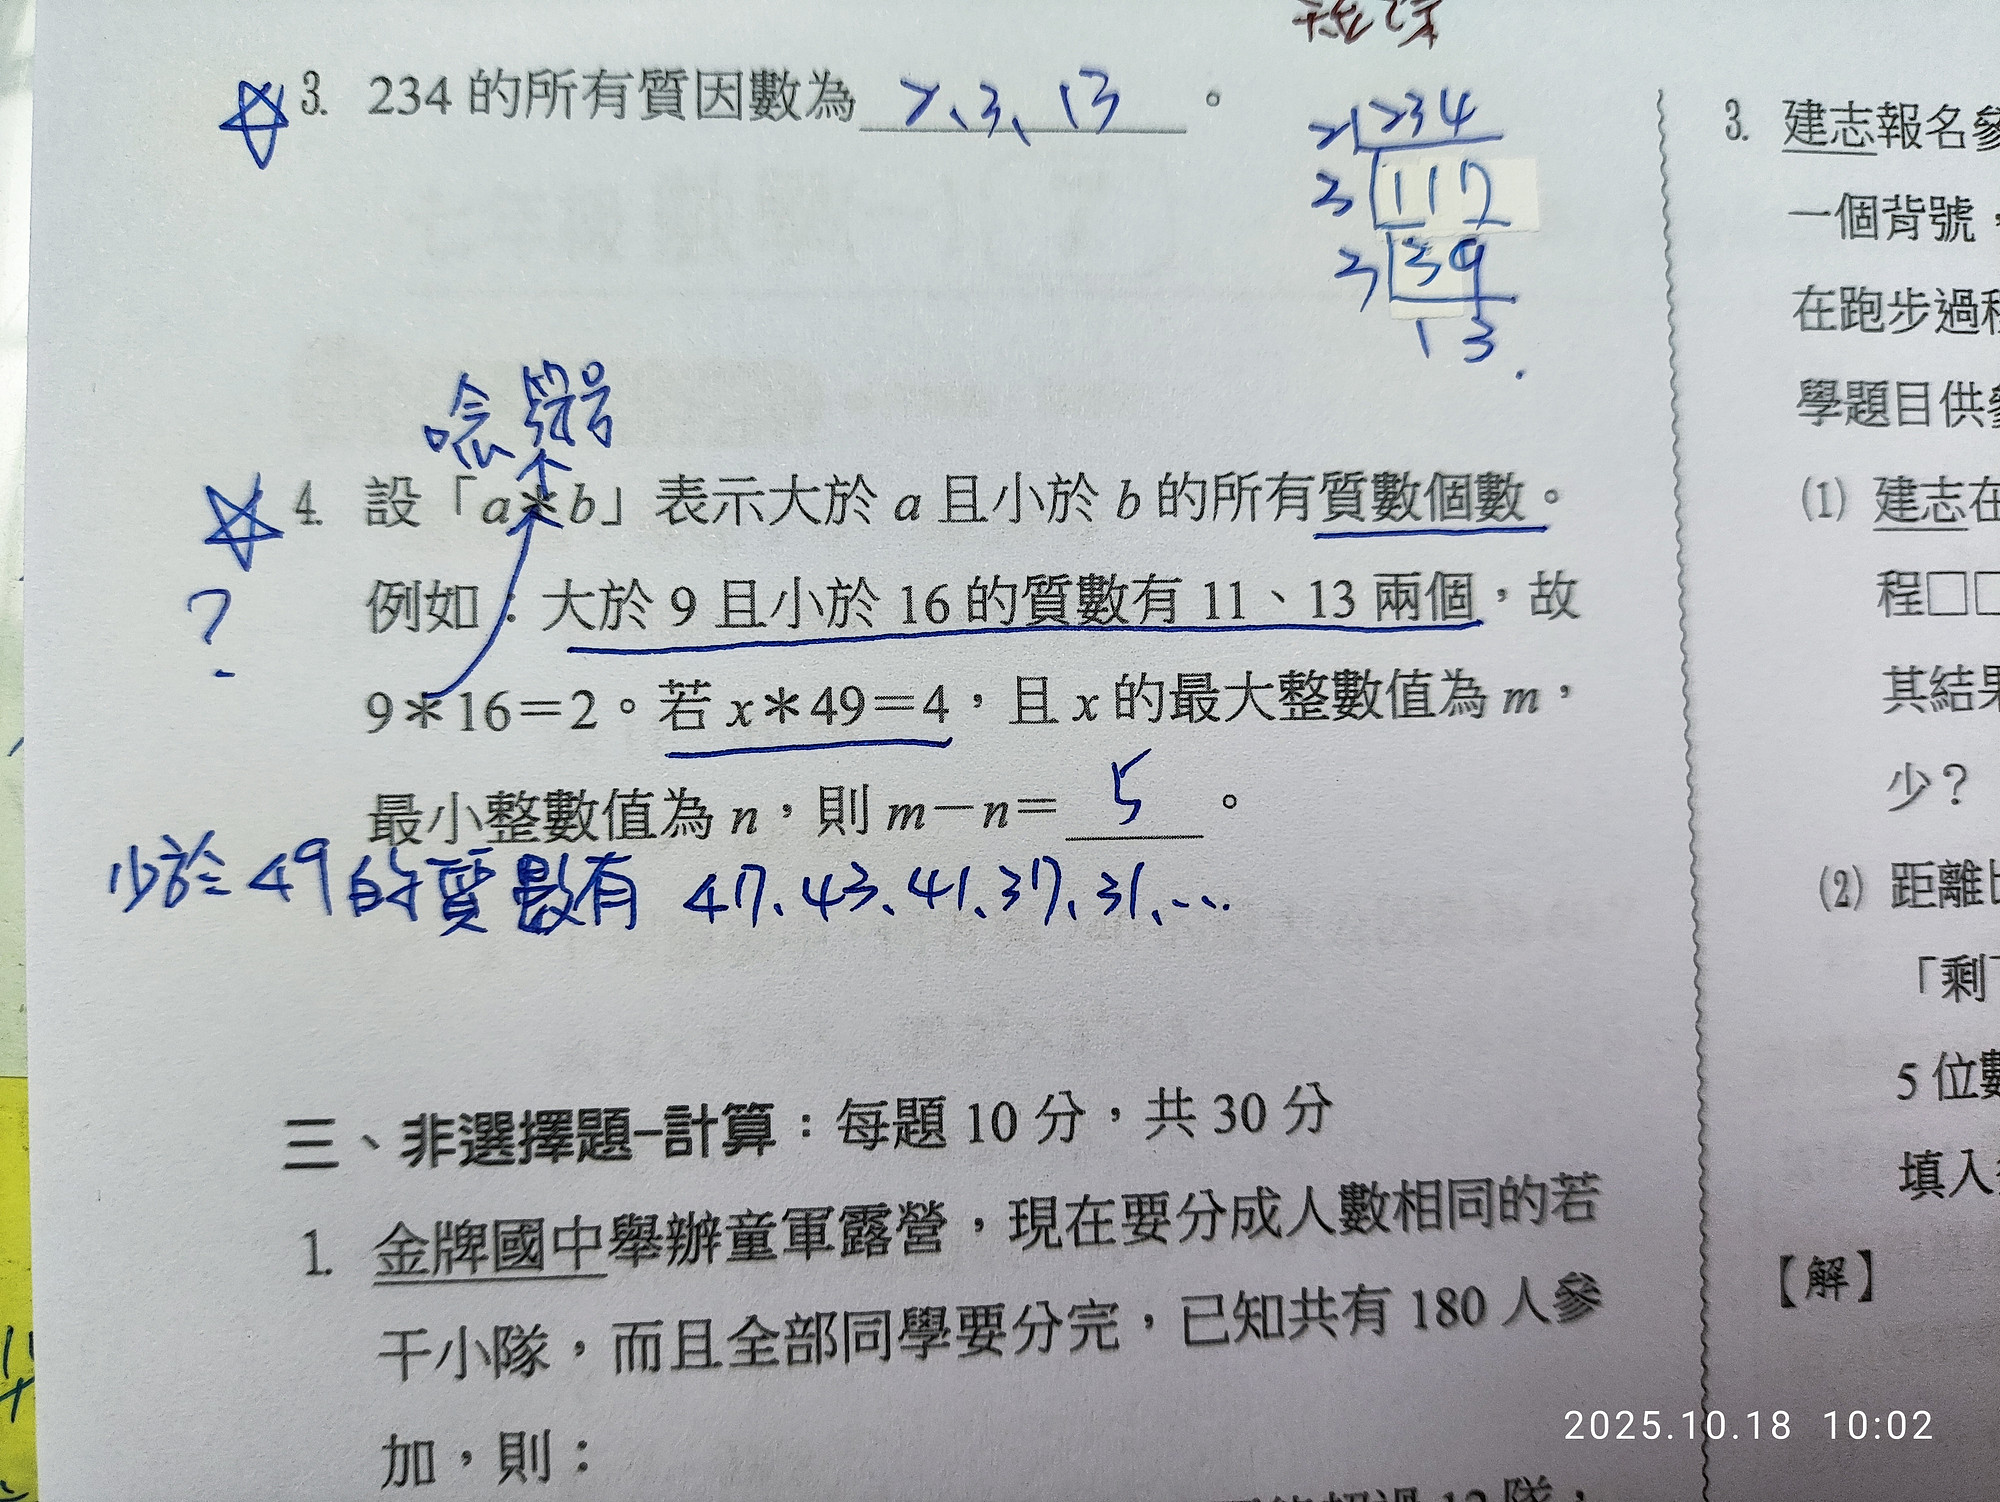 3. 234 的所有質因數為 2、3、13 。
2 234
3 117
3 39
13
唸 星号
4. 設「a＊b」表示大於 a 且小於 b 的所有質數個數。
? 例如：大於 9 且小於 16 的質數有 11、13 兩個，故
9＊16＝2。若 x＊49＝4，且 x 的最大整數值為 m，
最小整數值為 n，則 m－n＝ 5 。
少於 49 的質數有 47、43、41、37、31、…
三、非選擇題–計算：每題 10 分，共 30 分
1. 金牌國中舉辦童軍露營，現在要分成人數相同的若
干小隊，而且全部同學要分完，已知共有 180 人參
加，則：
3. 建志報名參
一個背號，
在跑步過程
學題目供參
(1) 建志在
程□□
其結果
少？
(2) 距離比
「剩下
5 位數
填入
【解】
2025.10.18 10:02